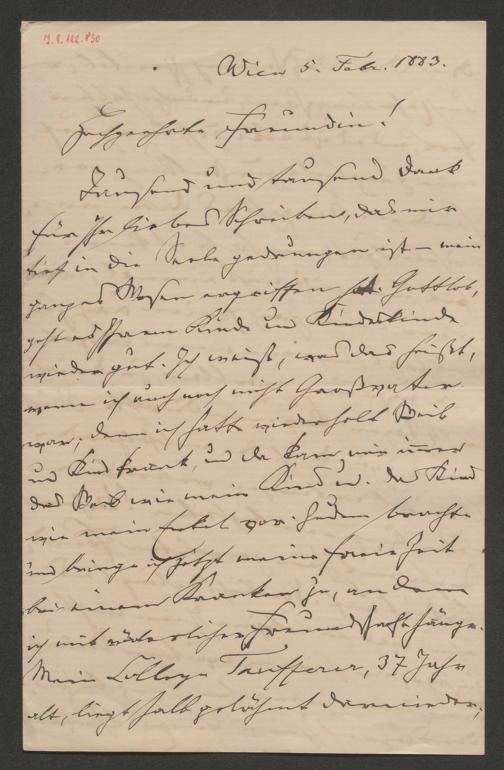 J. N. 162.830
Wien 5. Febr. 1883.
Hochgeehrte Freundin!
Tausend und tausend Dank
für Ihr liebes Schreiben, das mir
tief in die Seele gedrungen ist – mein
ganzes Wesen ergriffen hat. Gottlob,
geht es Ihrem Kinde u Kindeskinde
wieder gut. Ich weiß, was das heißt,
wenn ich auch noch nicht Großvater
war; denn ich hatte wiederholt Weib
und Kind krank, u da kam mir immer
das Weib wie mein Kind u. das Kind
wie mein Enkel vor. Zudem brachte
und bringe ich jetzt meine freie Zeit
bei einem Kranken zu, an dem
ich mit Freundschaft hänge.
Mein College Taufferer, 37 Jahr
alt, liegt halb gelähmt darnieder;